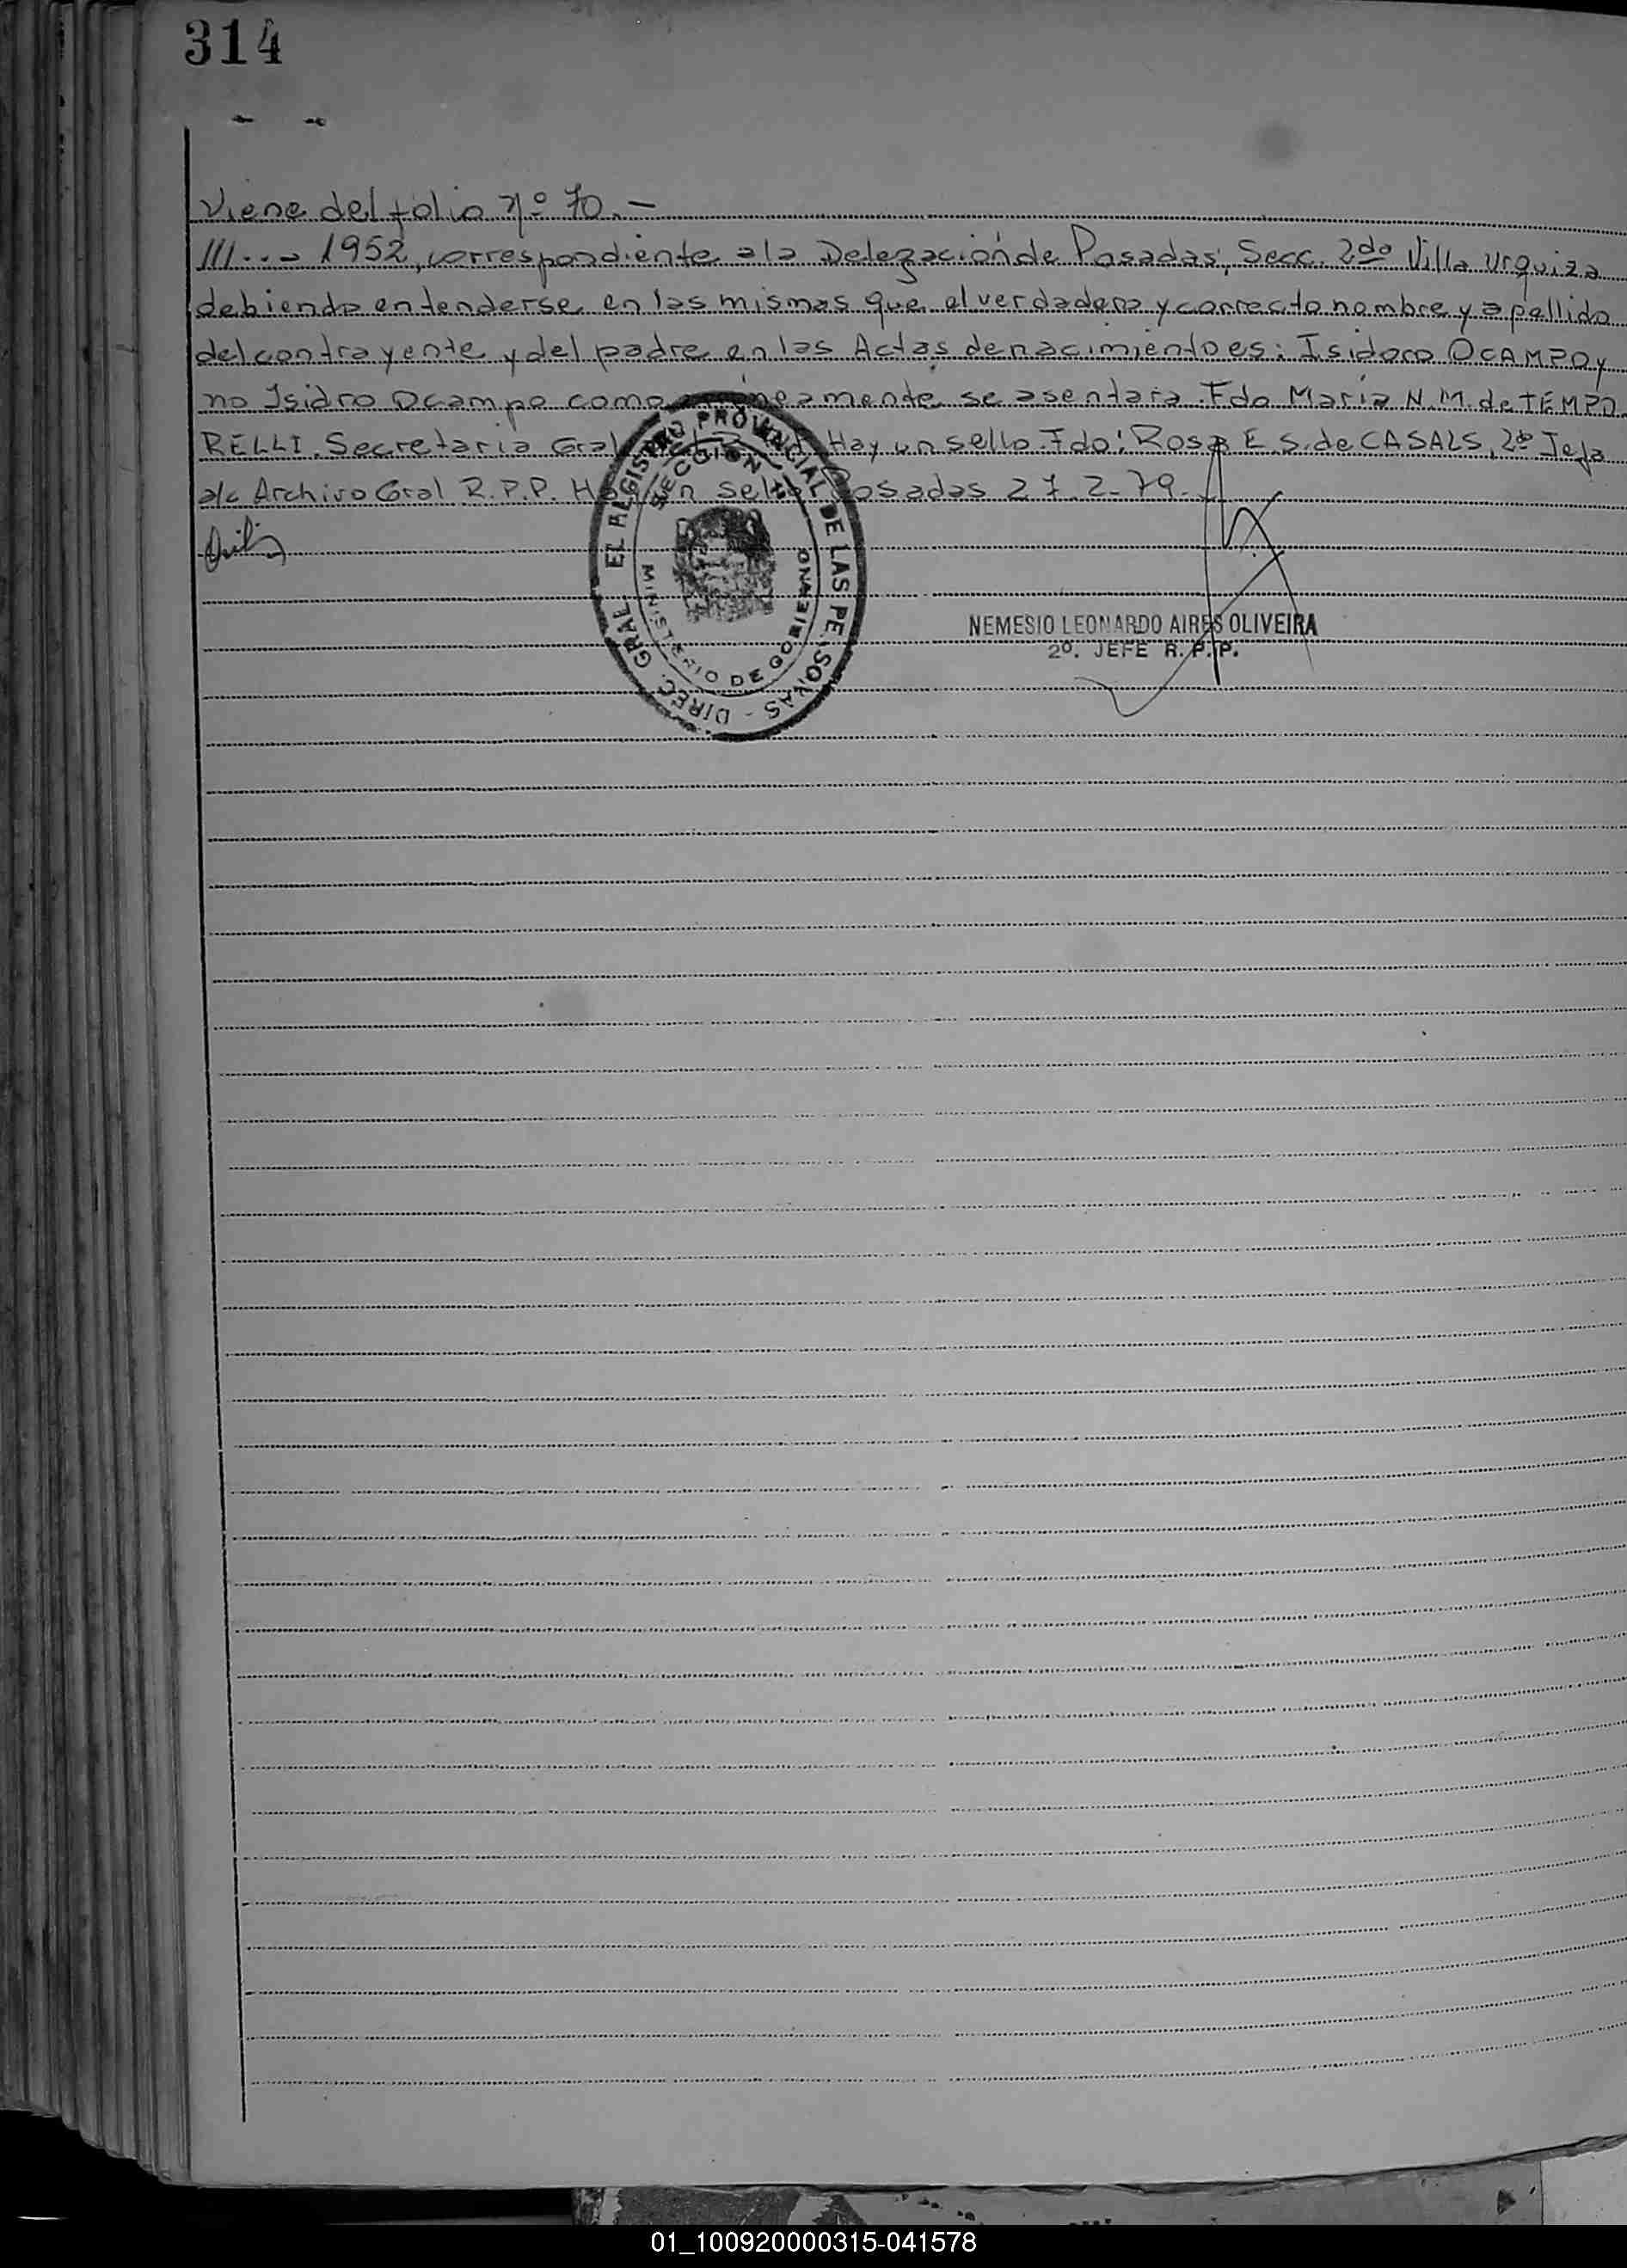 314
Viene del folio nº 70.-
III...- 1952, correspondiente a la Delegación de Posadas, Secc. 2do Villa Urquiza
debiendo entenderse en las mismas que el verdadero y correcto nombre y apellido
del contrayente y del padre en las Actas de nacimiento es: Isidoro OCAMPO y
no Isidro Ocampo como se asentara. Fdo Maria N.M. de TEMPO
RELLI. Secretaria Gral Hay un sello. Fdo: Rosa E. S. de CASALS, 2do Jefa
a/c Archivo Gral R.P.P. Hay un sello Posadas 27.2-79.-
DIREC. GRAL. EL REGISTRO PROVINCIAL DE LAS PERSONAS -
SECCION
MINISTERIO DE GOBIERNO
NEMESIO LEONARDO AIRES OLIVEIRA
2º. JEFE R.P.P.
01_100920000315-041578